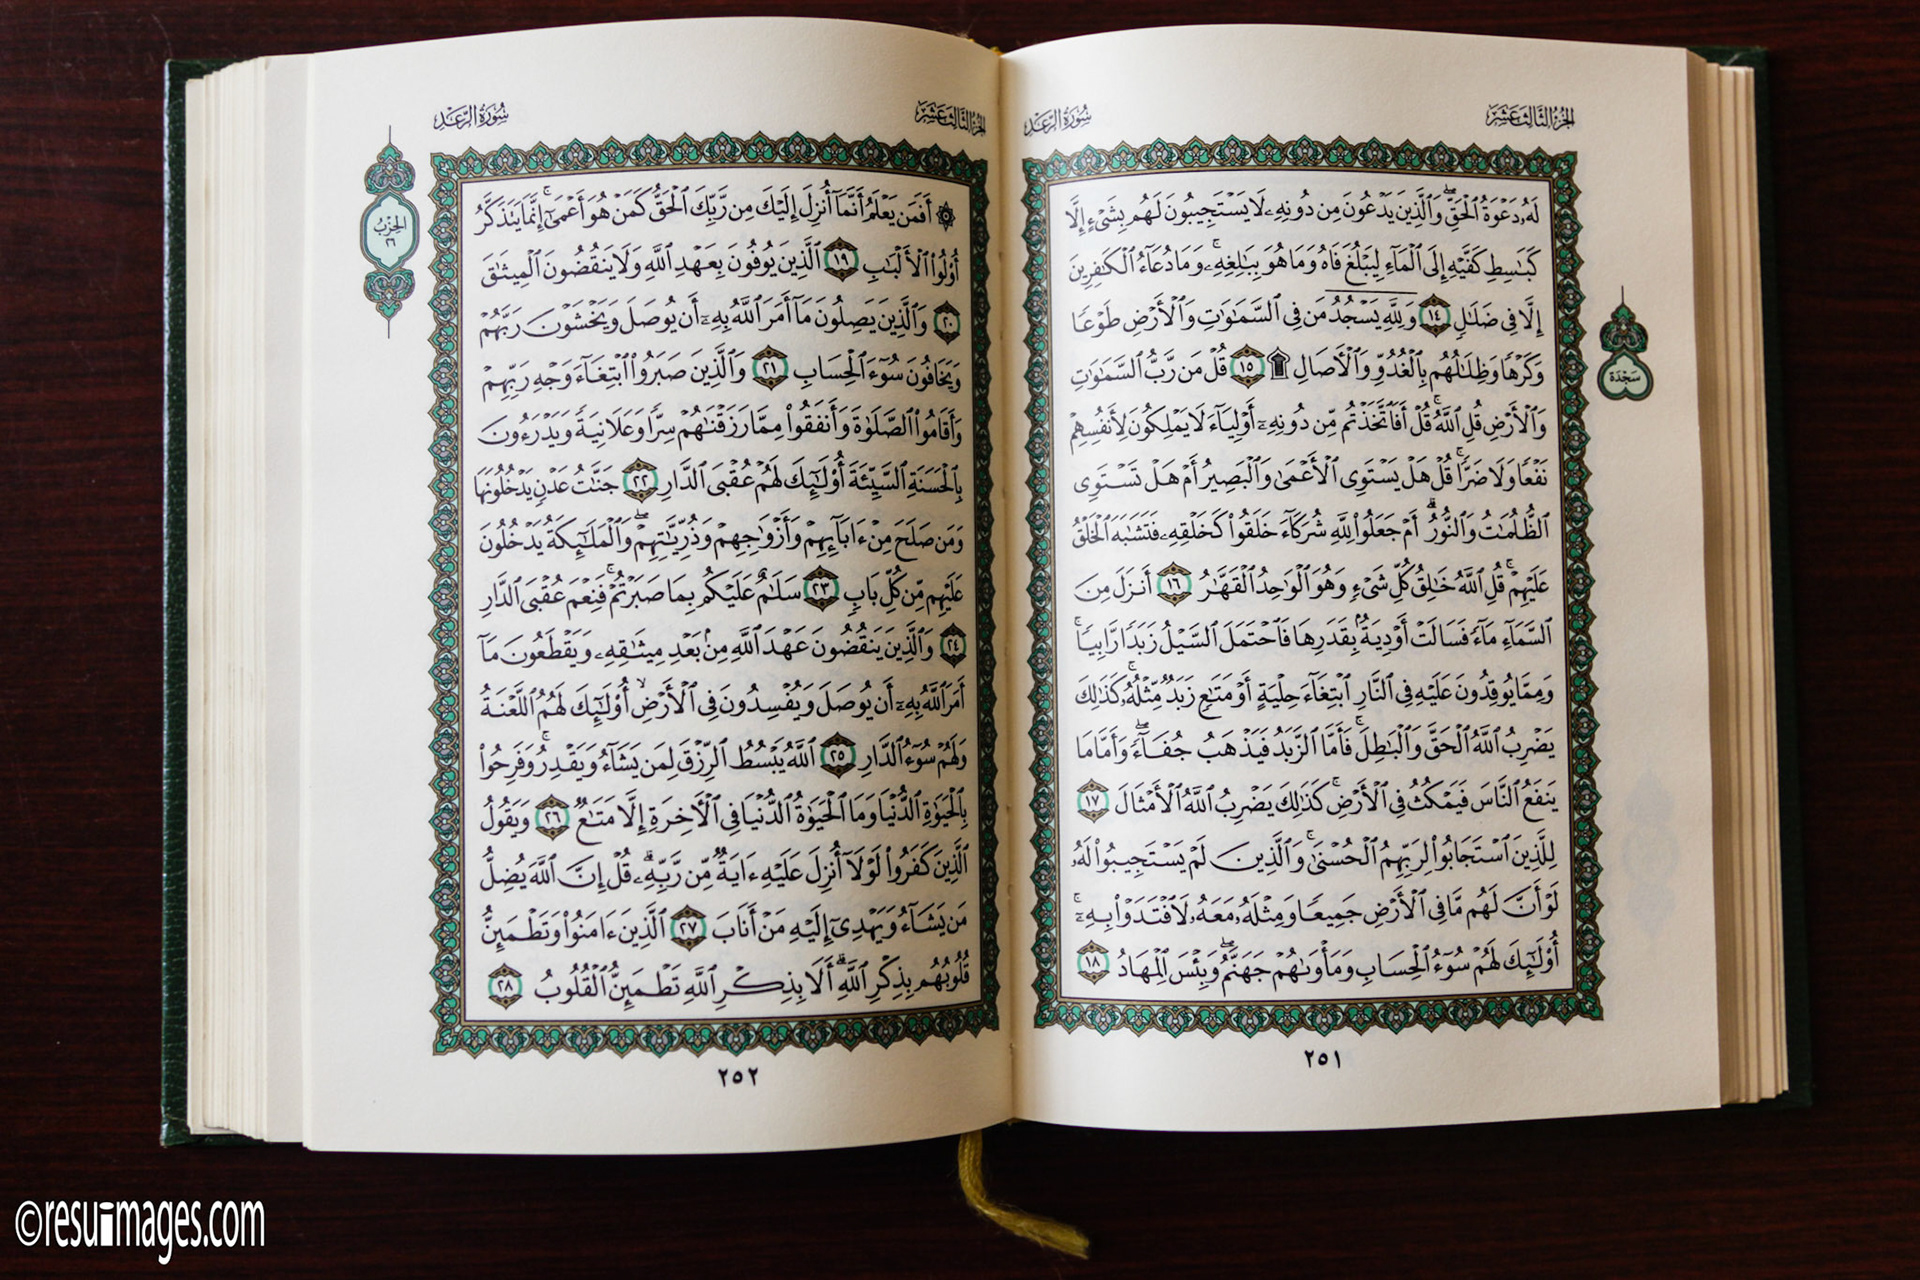 الجزء الثالث عشر
سورة الرعد
لَهُۥ دَعْوَةُ ٱلْحَقِّ ۖ وَٱلَّذِينَ يَدْعُونَ مِن دُونِهِۦ لَا يَسْتَجِيبُونَ لَهُم بِشَىْءٍ إِلَّا
كَبَـٰسِطِ كَفَّيْهِ إِلَى ٱلْمَآءِ لِيَبْلُغَ فَاهُ وَمَا هُوَ بِبَـٰلِغِهِۦ ۚ وَمَا دُعَآءُ ٱلْكَـٰفِرِينَ
إِلَّا فِى ضَلَـٰلٍ ١٤ وَلِلَّهِ يَسْجُدُ مَن فِى ٱلسَّمَـٰوَٰتِ وَٱلْأَرْضِ طَوْعًا
وَكَرْهًا وَظِلَـٰلُهُم بِٱلْغُدُوِّ وَٱلْـَٔاصَالِ ۩ ١٥ قُلْ مَن رَّبُّ ٱلسَّمَـٰوَٰتِ
وَٱلْأَرْضِ قُلِ ٱللَّهُ ۚ قُلْ أَفَٱتَّخَذْتُم مِّن دُونِهِۦٓ أَوْلِيَآءَ لَا يَمْلِكُونَ لِأَنفُسِهِمْ
نَفْعًا وَلَا ضَرًّا ۚ قُلْ هَلْ يَسْتَوِى ٱلْأَعْمَىٰ وَٱلْبَصِيرُ أَمْ هَلْ تَسْتَوِى
ٱلظُّلُمَـٰتُ وَٱلنُّورُ ۗ أَمْ جَعَلُوا۟ لِلَّهِ شُرَكَآءَ خَلَقُوا۟ كَخَلْقِهِۦ فَتَشَـٰبَهَ ٱلْخَلْقُ
عَلَيْهِمْ ۚ قُلِ ٱللَّهُ خَـٰلِقُ كُلِّ شَىْءٍ وَهُوَ ٱلْوَٰحِدُ ٱلْقَهَّـٰرُ ١٦ أَنزَلَ مِنَ
ٱلسَّمَآءِ مَآءً فَسَالَتْ أَوْدِيَةٌۢ بِقَدَرِهَا فَٱحْتَمَلَ ٱلسَّيْلُ زَبَدًا رَّابِيًا ۚ
وَمِمَّا يُوقِدُونَ عَلَيْهِ فِى ٱلنَّارِ ٱبْتِغَآءَ حِلْيَةٍ أَوْ مَتَـٰعٍ زَبَدٌ مِّثْلُهُۥ ۚ كَذَٰلِكَ
يَضْرِبُ ٱللَّهُ ٱلْحَقَّ وَٱلْبَـٰطِلَ ۚ فَأَمَّا ٱلزَّبَدُ فَيَذْهَبُ جُفَآءً ۖ وَأَمَّا مَا
يَنفَعُ ٱلنَّاسَ فَيَمْكُثُ فِى ٱلْأَرْضِ ۚ كَذَٰلِكَ يَضْرِبُ ٱللَّهُ ٱلْأَمْثَالَ ١٧
لِلَّذِينَ ٱسْتَجَابُوا۟ لِرَبِّهِمُ ٱلْحُسْنَىٰ ۚ وَٱلَّذِينَ لَمْ يَسْتَجِيبُوا۟ لَهُۥ
لَوْ أَنَّ لَهُم مَّا فِى ٱلْأَرْضِ جَمِيعًا وَمِثْلَهُۥ مَعَهُۥ لَٱفْتَدَوْا۟ بِهِۦٓ ۚ
أُو۟لَـٰٓئِكَ لَهُمْ سُوٓءُ ٱلْحِسَابِ وَمَأْوَىٰهُمْ جَهَنَّمُ ۖ وَبِئْسَ ٱلْمِهَادُ ١٨
سجدة
٢٥١
الجزء الثالث عشر
سورة الرعد
۞ أَفَمَن يَعْلَمُ أَنَّمَآ أُنزِلَ إِلَيْكَ مِن رَّبِّكَ ٱلْحَقُّ كَمَنْ هُوَ أَعْمَىٰٓ ۚ إِنَّمَا يَتَذَكَّرُ
أُو۟لُوا۟ ٱلْأَلْبَـٰبِ ١٩ ٱلَّذِينَ يُوفُونَ بِعَهْدِ ٱللَّهِ وَلَا يَنقُضُونَ ٱلْمِيثَـٰقَ
٢٠ وَٱلَّذِينَ يَصِلُونَ مَآ أَمَرَ ٱللَّهُ بِهِۦٓ أَن يُوصَلَ وَيَخْشَوْنَ رَبَّهُمْ
وَيَخَافُونَ سُوٓءَ ٱلْحِسَابِ ٢١ وَٱلَّذِينَ صَبَرُوا۟ ٱبْتِغَآءَ وَجْهِ رَبِّهِمْ
وَأَقَامُوا۟ ٱلصَّلَوٰةَ وَأَنفَقُوا۟ مِمَّا رَزَقْنَـٰهُمْ سِرًّا وَعَلَانِيَةً وَيَدْرَءُونَ
بِٱلْحَسَنَةِ ٱلسَّيِّئَةَ أُو۟لَـٰٓئِكَ لَهُمْ عُقْبَى ٱلدَّارِ ٢٢ جَنَّـٰتُ عَدْنٍ يَدْخُلُونَهَا
وَمَن صَلَحَ مِنْ ءَابَآئِهِمْ وَأَزْوَٰجِهِمْ وَذُرِّيَّـٰتِهِمْ ۖ وَٱلْمَلَـٰٓئِكَةُ يَدْخُلُونَ
عَلَيْهِم مِّن كُلِّ بَابٍ ٢٣ سَلَـٰمٌ عَلَيْكُم بِمَا صَبَرْتُمْ ۚ فَنِعْمَ عُقْبَى ٱلدَّارِ
٢٤ وَٱلَّذِينَ يَنقُضُونَ عَهْدَ ٱللَّهِ مِنۢ بَعْدِ مِيثَـٰقِهِۦ وَيَقْطَعُونَ مَآ
أَمَرَ ٱللَّهُ بِهِۦٓ أَن يُوصَلَ وَيُفْسِدُونَ فِى ٱلْأَرْضِ ۙ أُو۟لَـٰٓئِكَ لَهُمُ ٱللَّعْنَةُ
وَلَهُمْ سُوٓءُ ٱلدَّارِ ٢٥ ٱللَّهُ يَبْسُطُ ٱلرِّزْقَ لِمَن يَشَآءُ وَيَقْدِرُ ۚ وَفَرِحُوا۟
بِٱلْحَيَوٰةِ ٱلدُّنْيَا وَمَا ٱلْحَيَوٰةُ ٱلدُّنْيَا فِى ٱلْـَٔاخِرَةِ إِلَّا مَتَـٰعٌ ٢٦ وَيَقُولُ
ٱلَّذِينَ كَفَرُوا۟ لَوْلَآ أُنزِلَ عَلَيْهِ ءَايَةٌ مِّن رَّبِّهِۦ ۗ قُلْ إِنَّ ٱللَّهَ يُضِلُّ
مَن يَشَآءُ وَيَهْدِىٓ إِلَيْهِ مَنْ أَنَابَ ٢٧ ٱلَّذِينَ ءَامَنُوا۟ وَتَطْمَئِنُّ
قُلُوبُهُم بِذِكْرِ ٱللَّهِ ۗ أَلَا بِذِكْرِ ٱللَّهِ تَطْمَئِنُّ ٱلْقُلُوبُ ٢٨
الحزب
٢٦
٢٥٢
©resuimages.com